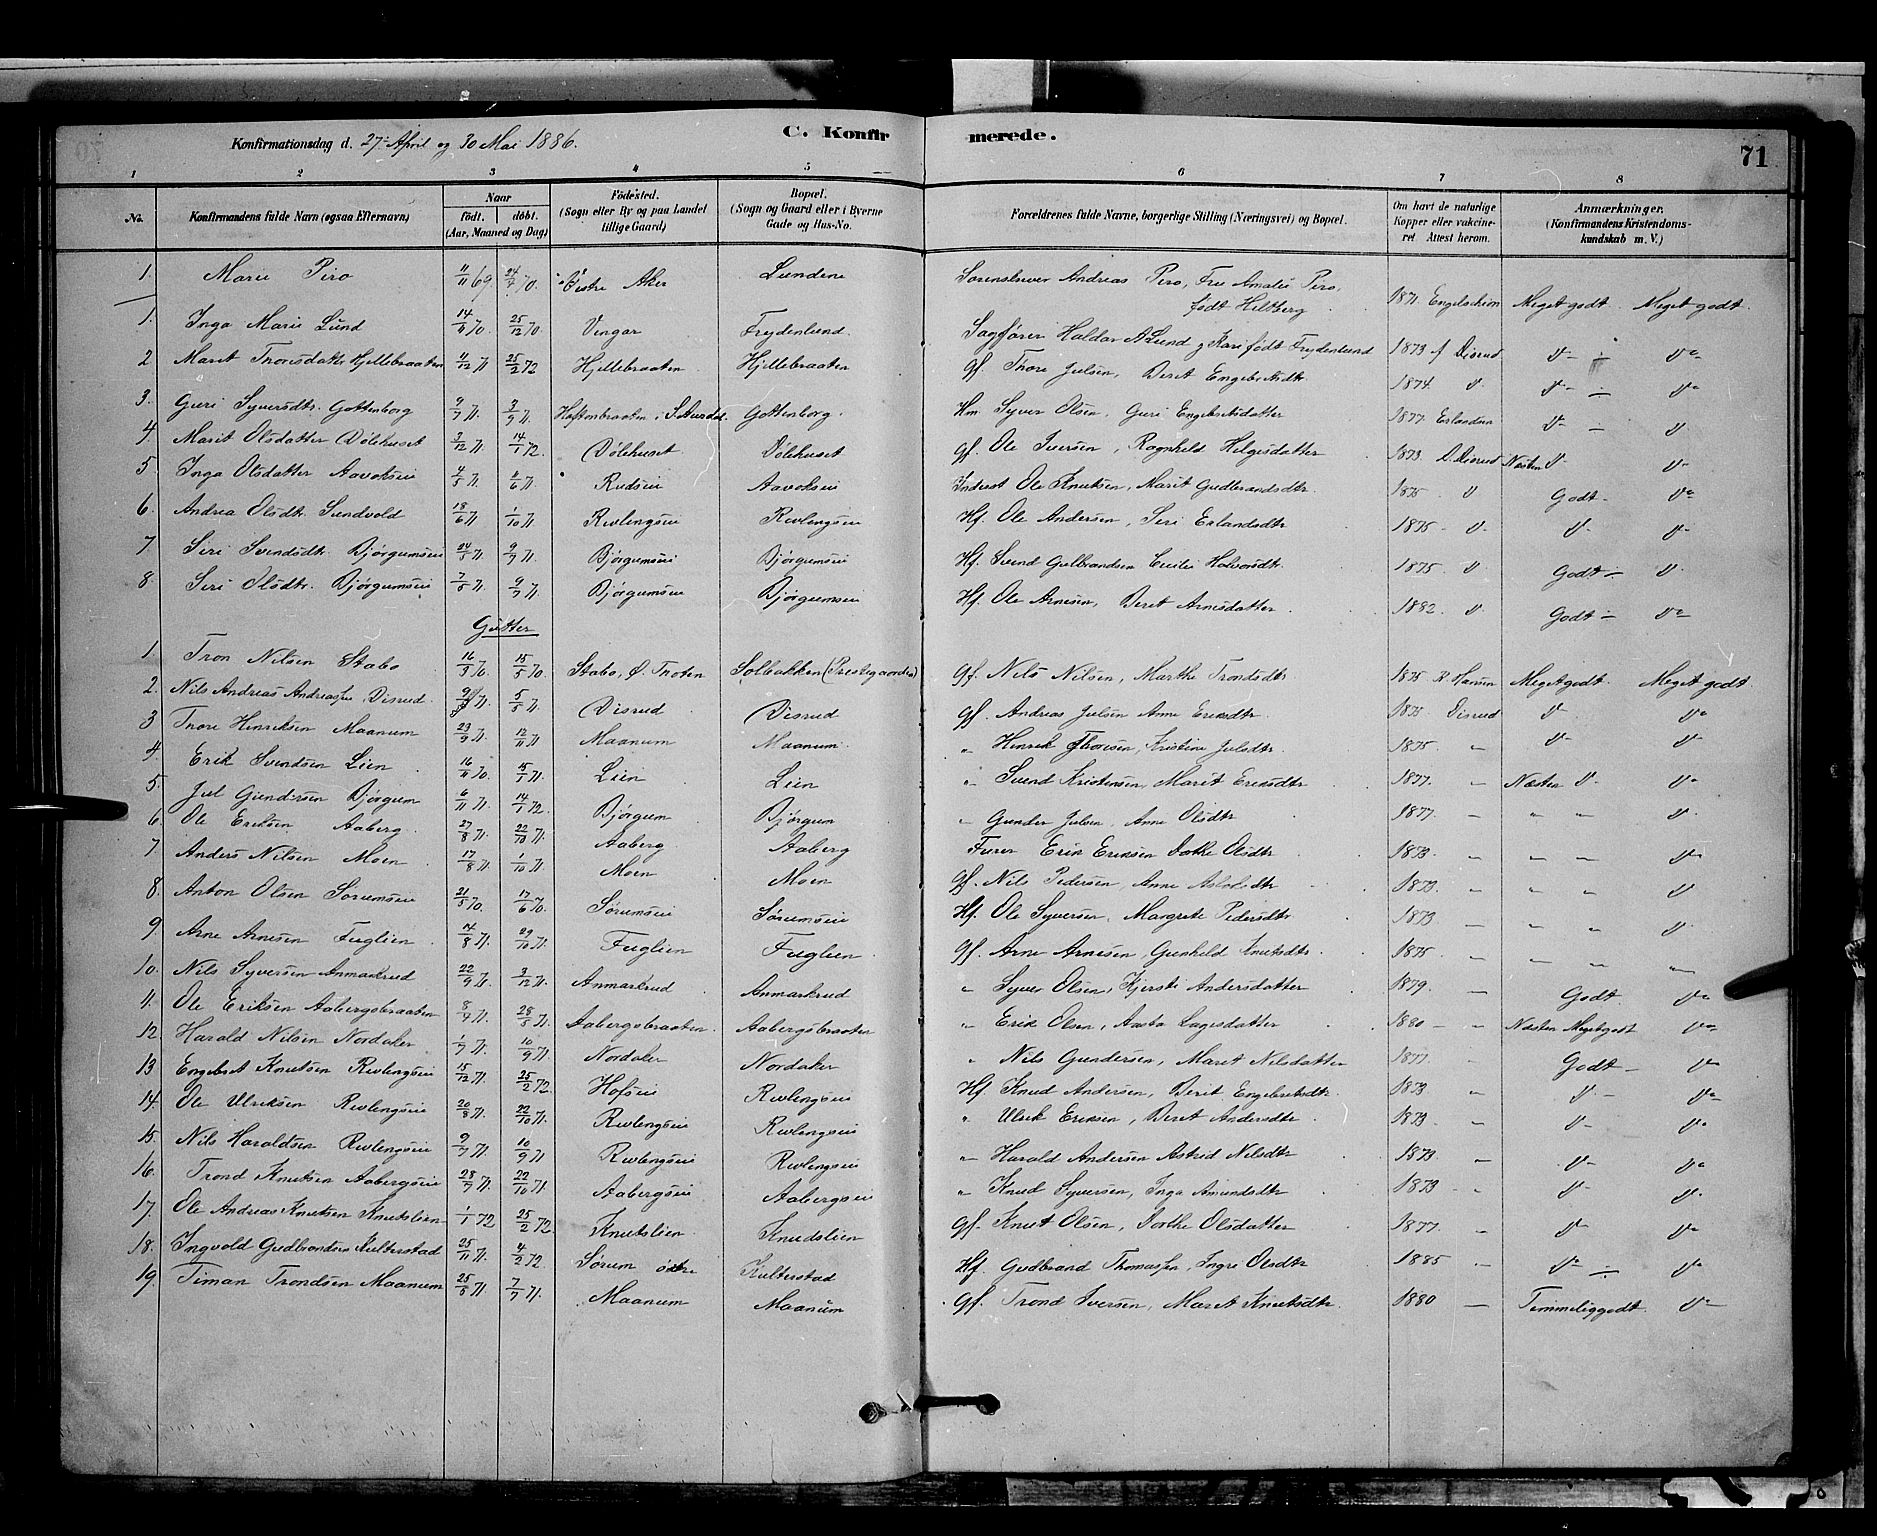 Konfirmationsdag d. 27de April og 30 Mai 1886. C. Konfirmerede. 71
1 2 3 4 5 6 7 8
No. Konfirmandens fulde Navn (ogsaa Efternavn) Naar født. døbt. (Aar, Maaned og Dag) Födested. (Sogn eller By og paa Landet tillige Gaard) Bopæl. (Sogn og Gaard eller i Byerne Gade og Hus-No. Forældrenes fulde Navne, borgerlige Stilling (Næringsvei) og Bopæl. Om havt de naturlige Kopper eller vakcineret Attest herom. Anmærkninger. (Konfirmandens Kristendomskundskab m. V.)
1. Marie Piro 11/11 69. 24/4 70. Østre Aker Lundene Sorenskriver Andreas Piro, Fru Amalie Piro, født Hiltberg 1871 Meget godt Meget godt
1. Inga Marie Lund 14/9 70. 25/12 70. Vingar Frydenlund Sagfører Haldor A Lund og Kari født Frydenlund 1873 af Disrud
2 Marit Thoresdatter Hjellebraaten 11/12 71 25/2 72 Hjellebraaten Hjellebraaten Gf. Thore Julsen, Beret Engebretsdtr. 1874
3. Guri Syversdtr. Gottenborg 9/7 71. 3/9 71. i S. Aurdal. Gottenborg. Hm. Syver Olsen, Guri Engebretsdatter 1877 Erlandsen
4. Marit Olsdatter Dölehuset 3/12 71 14/1 72. Dölehuset Dölehuset Gf. Ole Iversen, Ragnhild Helgesdatter 1873. D. Disrud Næsten
5. Inga Olsdatter Aavoksei 4/5 71. 4/6 71. Rudsei Aavoksei Inderst Ole Knutsen, Marit Gudbrandsdtr. 1875 Godt
6. Andrea Olsdtr. Sundvold 18/6 71 1/10 71. Rivlengsei Rivlengsei Hf. Ole Andersen, Siri Erlandsdtr 1875
7 Siri Svendsdtr. Bjørgumsei 24/5 71. 9/7 71. Bjørgumsei Bjørgumsei Hf. Svend Gulbrandsen Cecilie Halvorsdtr. 1875 Godt
8. Siri Olsdtr. Bjørgumsei 7/5 71. 9/7 71. Bjørgumsei Bjørgumsei Hf. Ole Arnesen, Beret Arnesdatter 1882 Godt
Gutter
1 Tron Nilsen Stabo 16/3 70. 15/5 70. Stabo, Ø. Thoten Solbakken (Prestegaarden) Gf. Nils Nilsen, Marthe Trondsdtr. 1875 R. Hansen Meget godt. Meget godt.
2. Nils Andreas Andreassen Disrud 71. 5/5 71. Disrud Disrud Gf. Andreas Julsen Anne Eriksdtr. 1875 Disrud
3 Thore Henriksen Maanum 23/9 71. 12/11 71 Maanum Maanum Henrik Thoresen, Kristine Julsdtr 1875
4. Erik Svendsen Lien 16/11 70. 15/1 71. Lien Lien Svend Kristensen, Marit Eriksdtr 1877 Næsten
5. Jul Gundersen Bjørgum 6/11 71. 14/1 72. Bjørgum Bjørgum Gunder Julsen, Anne Olsdtr 1877.
6. Ole Eriksen Aaberg. 27/8 71. 22/10 71. Aaberg. Aaberg Furer Erik Eriksen Dorthe Olsdtr 1873.
7. Anders Nilsen Moen 17/8 71. 1/10 71. Moen Moen Gf. Nils Pedersen, Anne 1873.
8. Anton Olsen Sørumsei 21/5 70. 17/6 70. Sørumsei Sørumsei Hf. Ole Syversen, Margrete Pedersdtr 1873
9. Arne Arnesen Fuglien 14/8 71. 29/10 71. Fuglien Fuglien Gf. Arne Arnesen, Gunhild Knutsdtr. 1875
10. Nils Syversen Anmarkrud 22/9 71. 3/12 71. Anmarkrud Anmarkrud Syver Olsen, Kjersti Andersdatter 1879. Godt.
11. Ole Eriksen Aabergsbraaten 8/4 71. 28/5 71. Aabergsbraaten. Aabergsbraaten Erik Olsen, Aasta Lagesdatter 1880 Næsten Megetgodt
12. Harald Nilsen Nordaker 1/7 71. 10/9 71. Nordaker Nordaker Nils Gundersen, Marit Nilsdatter 1877. Godt
13 Engebret Knutsen Rivlengsei 15/12 71. 25/2 72. Hofsei Rivlengsei Hf. Knud Andersen, Berit Engebretsdtr. 1873.
14. Ole Ulriksen Rivlengsei 20/8 71. 22/10 71. Rivlengsei Rivlengsei Ulrik Eriksen, Beret Andersdtr 1873.
15. Nils Haraldsen Rivlengsei 9/7 71. 10/9 71 Rivlengsei Rivlengsei Harald Andersen Astrid Nilsdtr 1873
16. Trond Knutsen Aabergsei 28/7 71. 22/10 71. Aabergsei Aabergsei Knud Syversen, Inga Amundsdtr 1873
17. Ole Andreas Knutsen Knutslien 1/1 72 25/2 72. Knutslien Knudslien Gf. Knut Olsen, Dorthe Olsdatter 1877.
18. Ingvold Gudbrandsen Kulterstad 25/11 71. 4/2 72. Sørum østre Kulterstad Hf. Gudbrand Thomassen, Ingri Olsdtr 1885
19. Timan Trondsen Maanum 25/5 71. 7/7 71. Maanum Maanum Gf. Trond Iversen, Marit Knutsdtr. 1880 Temmeliggodt